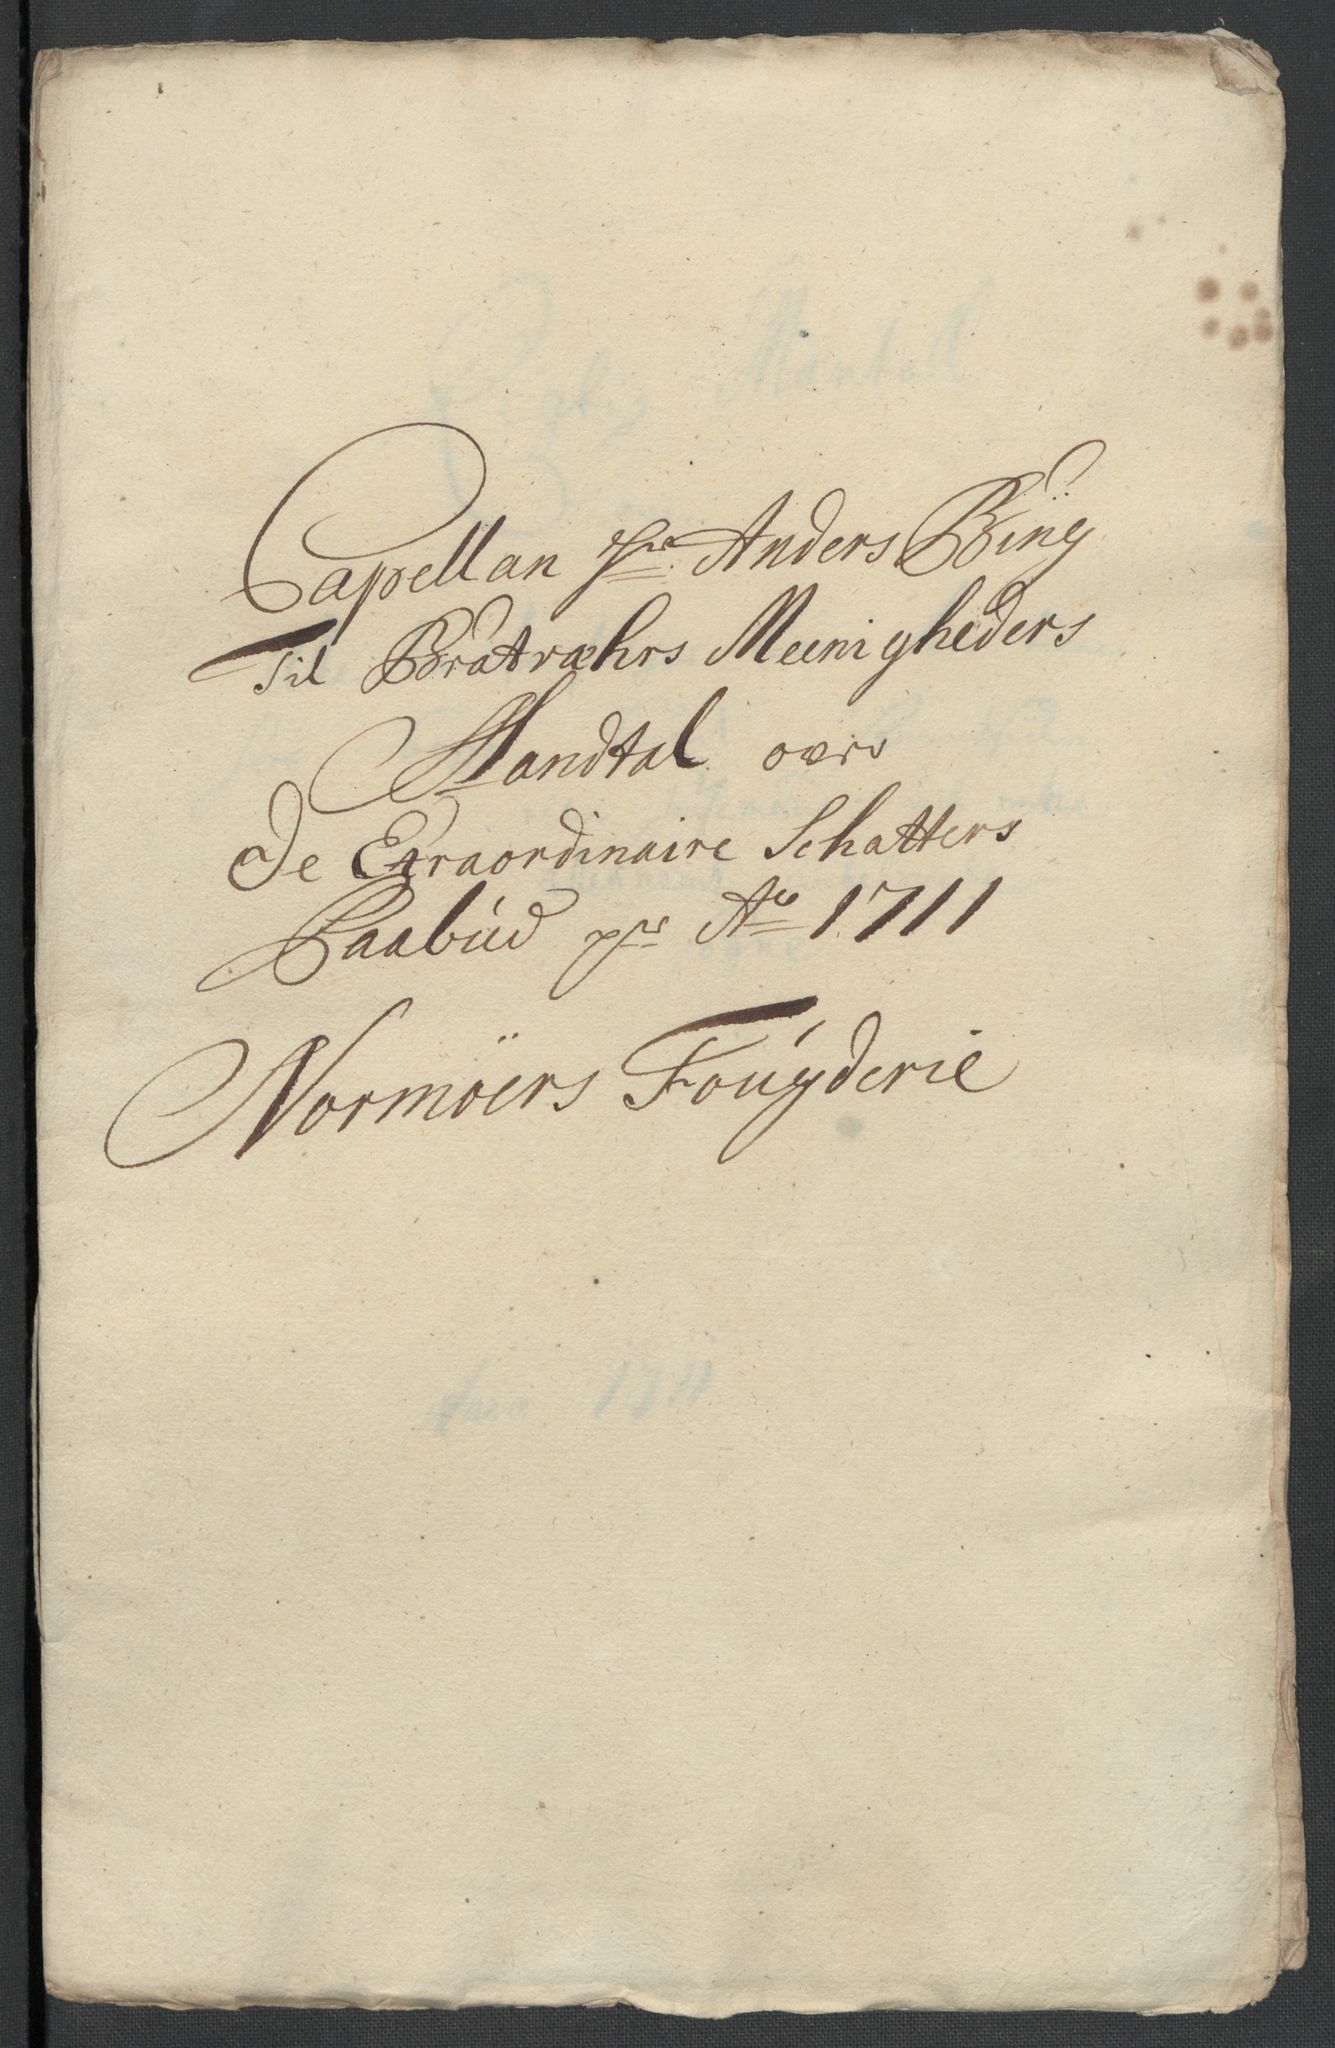 Capellan Hr. Anders Bing
Til Bratværs Meenigheders
Mandtal over
De Extraordinaire Schatters
Paabud pr Ao 1711
Normöers Fougderie